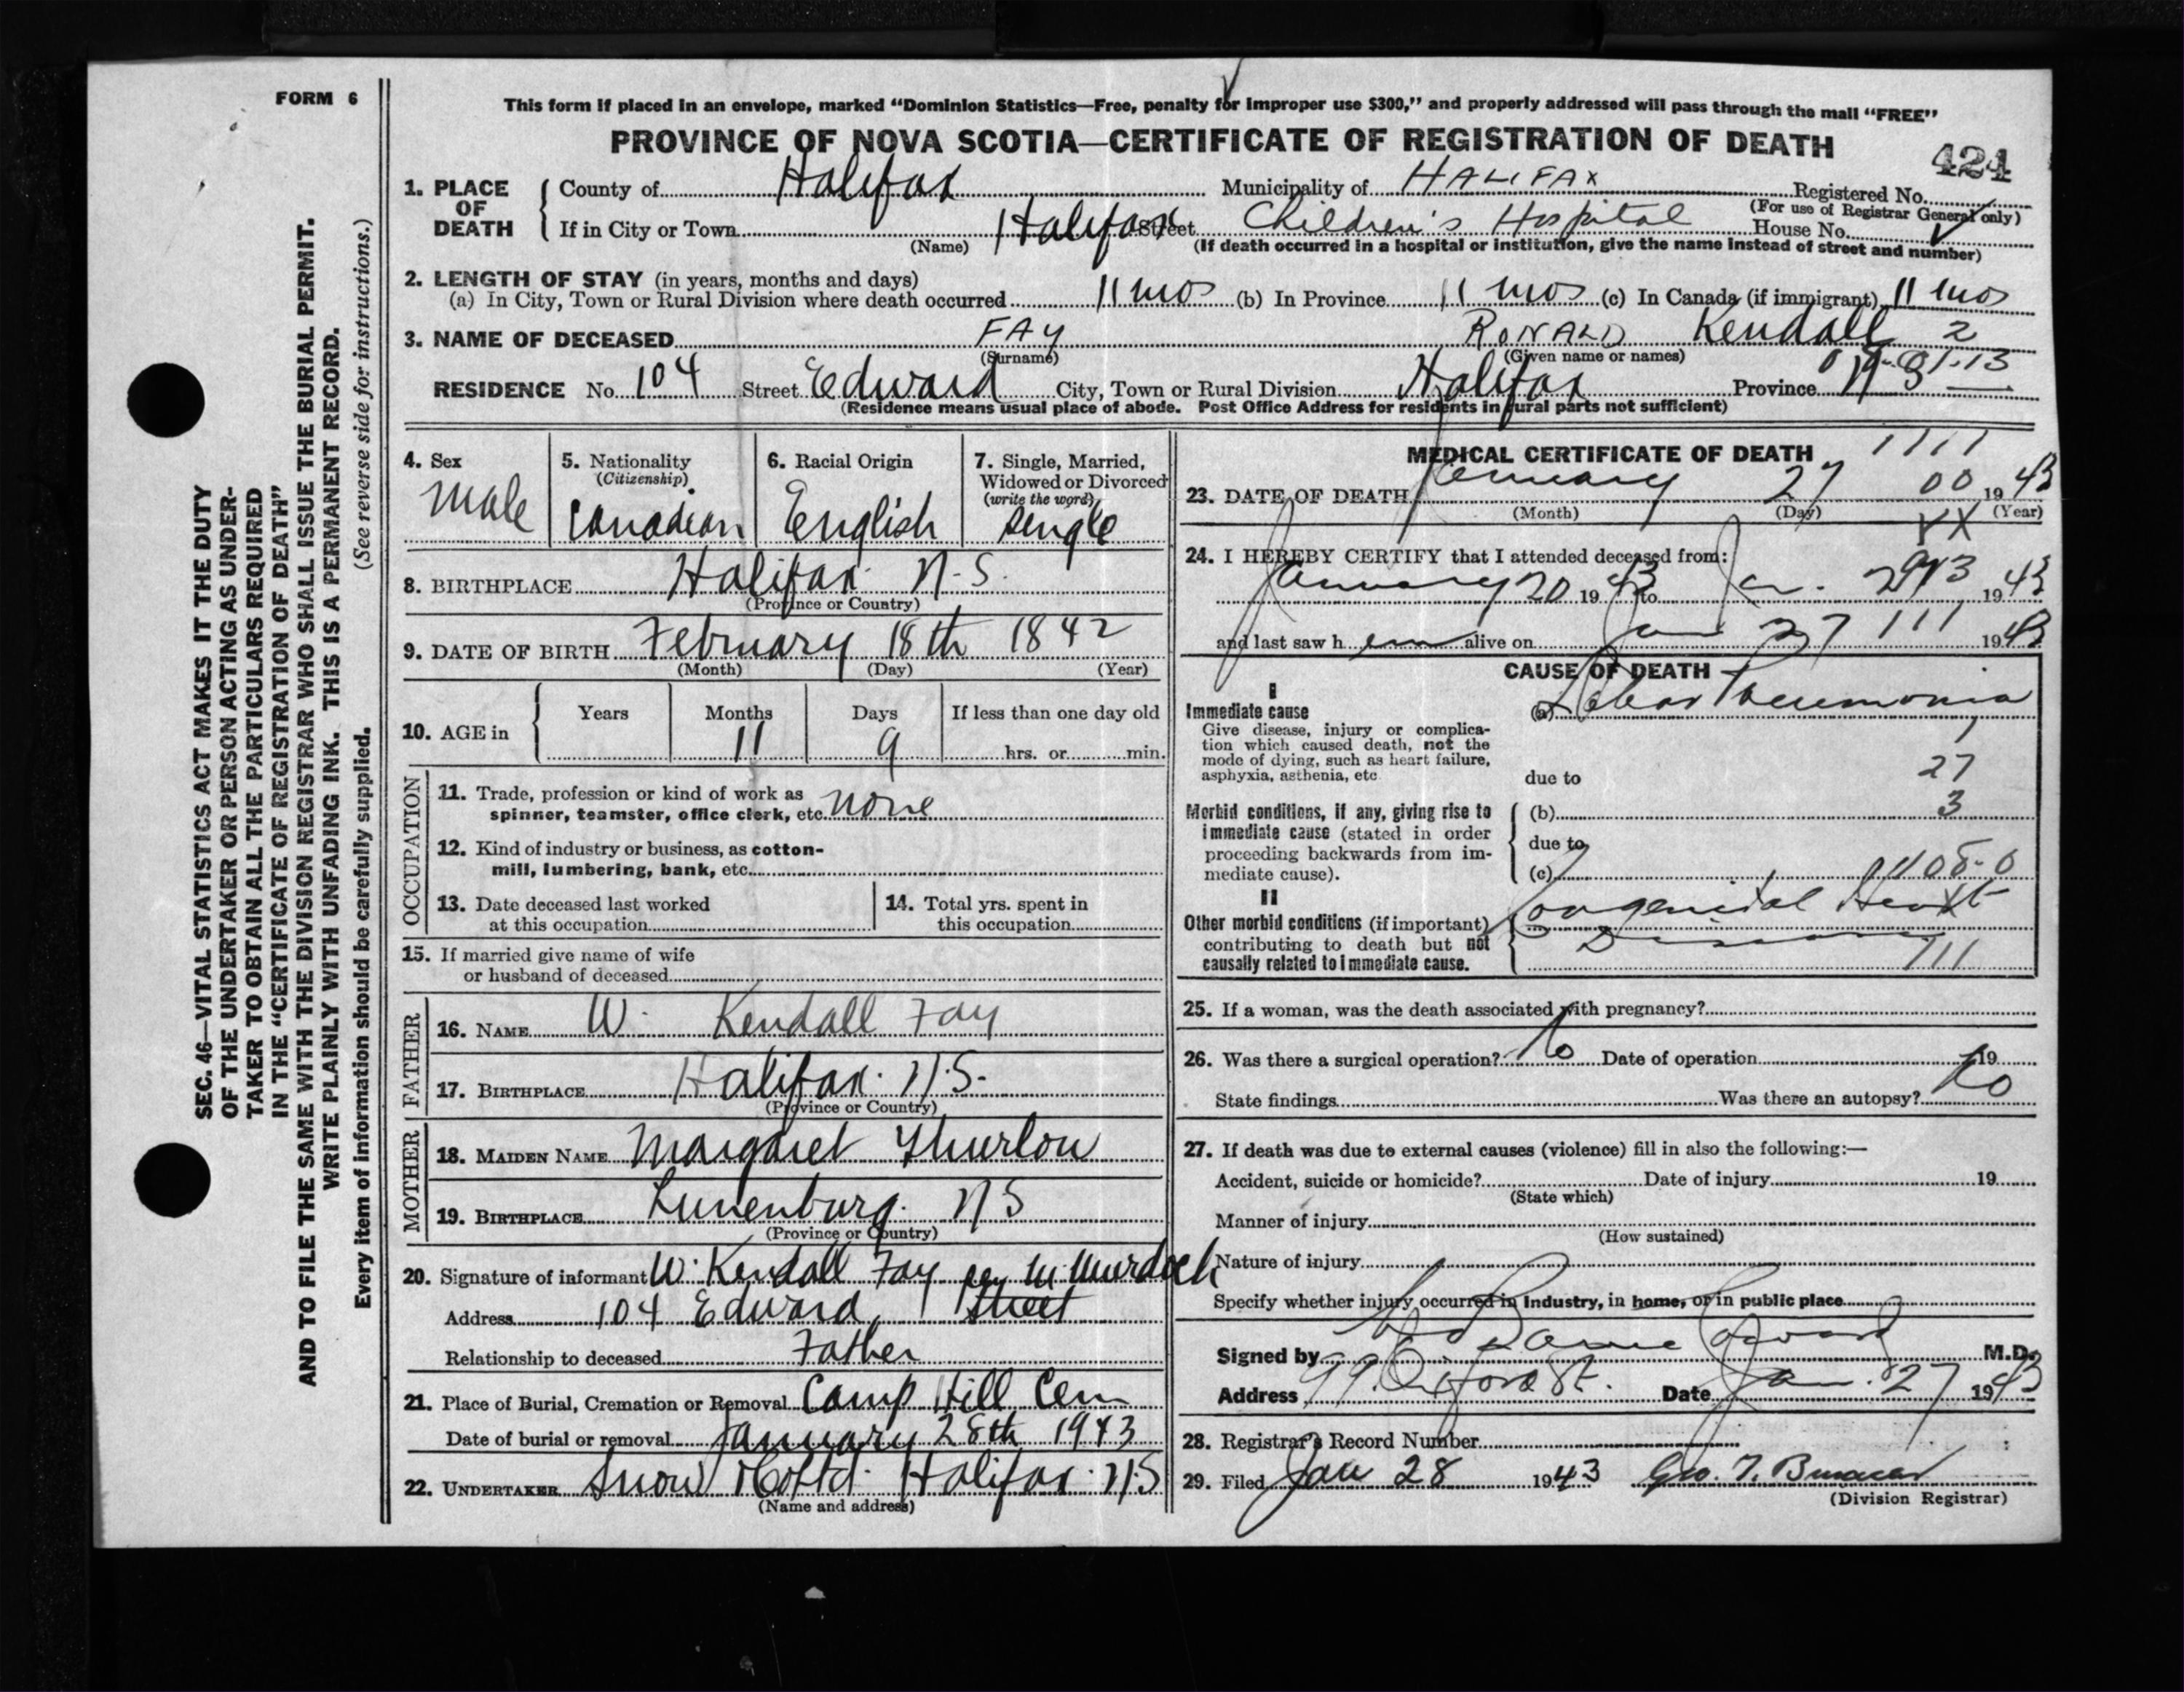 FORM 6
This form if placed in an envelope, marked “Dominion Statistics—Free, penalty for improper use $300,” and properly addressed will pass through the mail “FREE”
PROVINCE OF NOVA SCOTIA—CERTIFICATE OF REGISTRATION OF DEATH
424
1. PLACE OF DEATH
County of Halifax Municipality of HALIFAX Registered No.
(For use of Registrar General only)
If in City or Town Halifax Street Children's Hospital House No.
(Name) (If death occurred in a hospital or institution, give the name instead of street and number)
2. LENGTH OF STAY (in years, months and days)
(a) In City, Town or Rural Division where death occurred 11 mos (b) In Province 11 mos (c) In Canada (if immigrant) 11 mos
3. NAME OF DECEASED FAY RONALD Kendall 2
(Surname) (Given name or names)
RESIDENCE No. 104 Street Edward City, Town or Rural Division Halifax Province N S
(Residence means usual place of abode. Post Office Address for residents in rural parts not sufficient)
4. Sex
male
5. Nationality
(Citizenship)
Canadian
6. Racial Origin
English
7. Single, Married,
Widowed or Divorced
(write the word)
single
8. BIRTHPLACE Halifax N.S.
(Province or Country)
9. DATE OF BIRTH February 18th 1842
(Month) (Day) (Year)
10. AGE in
Years Months Days If less than one day old
11 9 hrs. or min.
OCCUPATION
11. Trade, profession or kind of work as
spinner, teamster, office clerk, etc. none
12. Kind of industry or business, as cotton-
mill, lumbering, bank, etc.
13. Date deceased last worked
at this occupation
14. Total yrs. spent in
this occupation
15. If married give name of wife
or husband of deceased
FATHER
16. NAME W. Kendall Fay
17. BIRTHPLACE Halifax N.S.
(Province or Country)
MOTHER
18. MAIDEN NAME Margaret Thurlow
19. BIRTHPLACE Lunenburg N S
(Province or Country)
20. Signature of informant W. Kendall Fay per M Murdoch
Address 104 Edward Street
Relationship to deceased Father
21. Place of Burial, Cremation or Removal Camp Hill Cem
Date of burial or removal January 28th 1943
22. UNDERTAKER Snow & Co Ltd. Halifax N S
(Name and address)
MEDICAL CERTIFICATE OF DEATH
1111
23. DATE OF DEATH January 27 00 1943
(Month) (Day) (Year)
XX
24. I HEREBY CERTIFY that I attended deceased from:
January 20 1943 to Jan. 27 1943
and last saw h im alive on Jan 27 111 1943
CAUSE OF DEATH
I
Immediate cause
Give disease, injury or complica-
tion which caused death, not the
mode of dying, such as heart failure,
asphyxia, asthenia, etc
(a) Lobar Pneumonia
1
27
3
due to
Morbid conditions, if any, giving rise to
immediate cause (stated in order
proceeding backwards from im-
mediate cause).
(b)
due to
(c)
II
Other morbid conditions (if important)
contributing to death but not
causally related to immediate cause.
Congenital Heart
Disease
711
25. If a woman, was the death associated with pregnancy?
26. Was there a surgical operation? No Date of operation 19
State findings Was there an autopsy? No
27. If death was due to external causes (violence) fill in also the following:—
Accident, suicide or homicide? Date of injury 19
(State which)
Manner of injury
(How sustained)
Nature of injury
Specify whether injury occurred in industry, in home, or in public place
Signed by M.D.
Address 99 Oxford St. Date Jan. 27 1943
28. Registrar's Record Number
29. Filed Jan 28 1943 Geo. T.
(Division Registrar)
SEC. 46—VITAL STATISTICS ACT MAKES IT THE DUTY
OF THE UNDERTAKER OR PERSON ACTING AS UNDER-
TAKER TO OBTAIN ALL THE PARTICULARS REQUIRED
IN THE “CERTIFICATE OF REGISTRATION OF DEATH”
AND TO FILE THE SAME WITH THE DIVISION REGISTRAR WHO SHALL ISSUE THE BURIAL PERMIT.
WRITE PLAINLY WITH UNFADING INK. THIS IS A PERMANENT RECORD.
Every item of information should be carefully supplied. (See reverse side for instructions.)